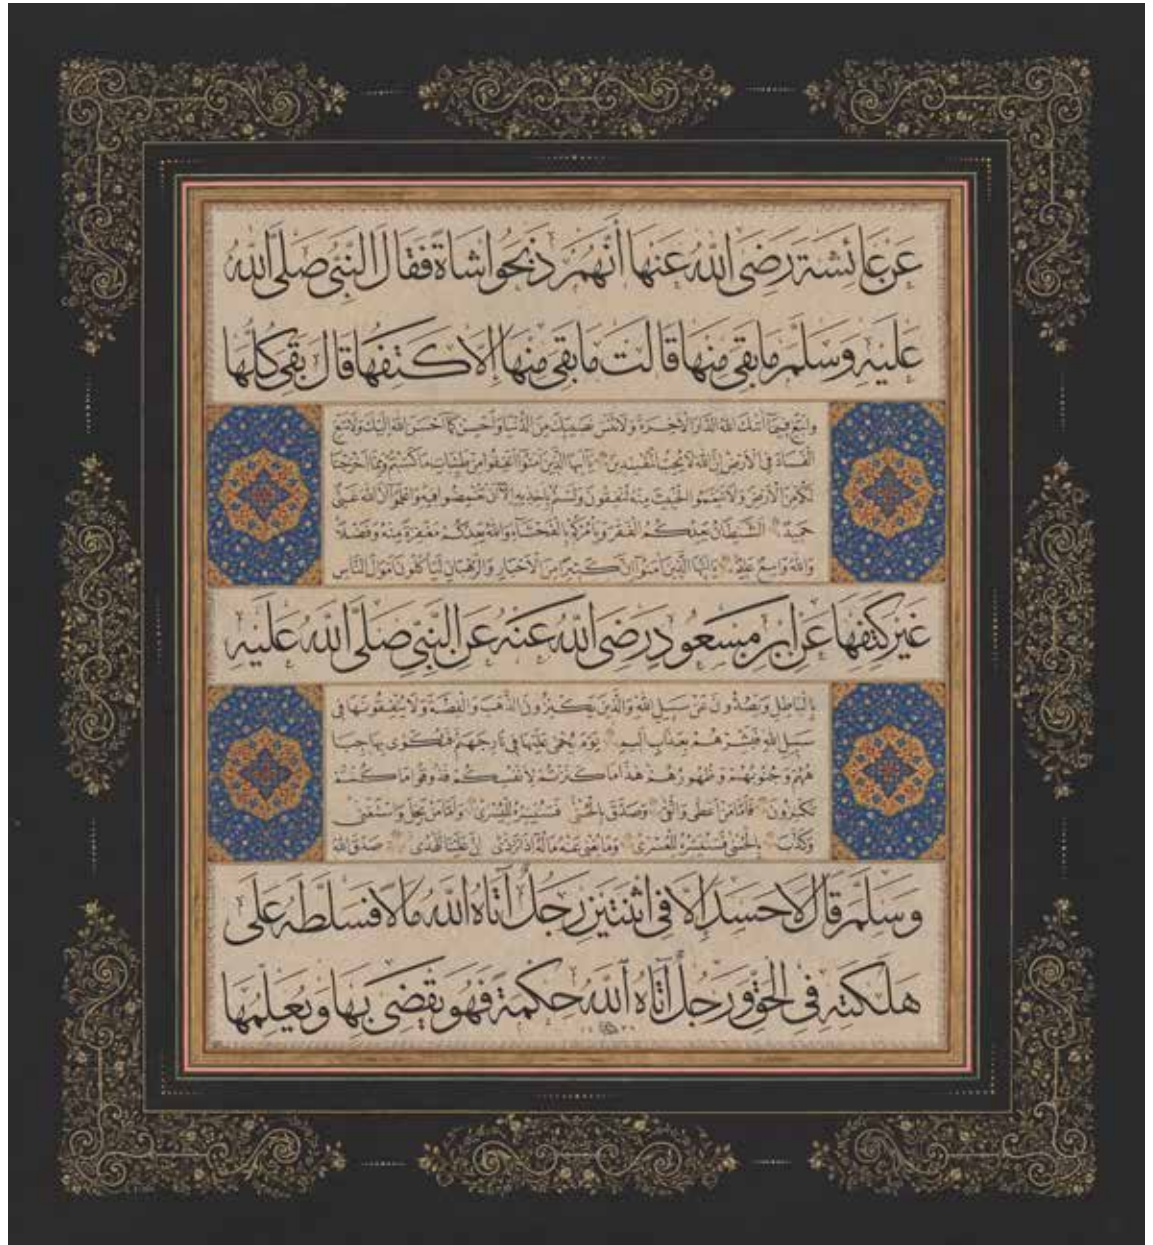 عَنْ عَائِشَةَ رَضِيَ اللهُ عَنْهَا أَنَّهُمْ ذَبَحُوا شَاةً فَقَالَ النَّبِيُّ صَلَّى اللهُ
عَلَيْهِ وَسَلَّمَ مَا بَقِيَ مِنْهَا قَالَتْ مَا بَقِيَ مِنْهَا إِلَّا كَتِفُهَا قَالَ بَقِيَ كُلُّهَا
وابتغ فيما آتىك الله الدار الآخرة ولا تنس نصيبك من الدنيا وأحسن كما أحسن الله إليك ولا تبغ
الفساد في الأرض إن الله لا يحب المفسدين يا أيها الذين آمنوا أنفقوا من طيبات ما كسبتم ومما أخرجنا
لكم من الأرض ولا تيمموا الخبيث منه تنفقون ولستم بآخذيه إلا أن تغمضوا فيه واعلموا أن الله غني
حميد الشيطان يعدكم الفقر ويأمركم بالفحشاء والله يعدكم مغفرة منه وفضلا
والله واسع عليم يا أيها الذين آمنوا إن كثيرا من الأحبار والرهبان ليأكلون أموال الناس
غَيْرَ كَتِفِهَا عَنِ ابْنِ مَسْعُودٍ رَضِيَ اللهُ عَنْهُ عَنِ النَّبِيِّ صَلَّى اللهُ عَلَيْهِ
بالباطل ويصدون عن سبيل الله والذين يكنزون الذهب والفضة ولا ينفقونها في
سبيل الله فبشرهم بعذاب أليم يوم يحمى عليها في نار جهنم فتكوى بها جبا
ههم وجنوبهم وظهورهم هذا ما كنزتم لأنفسكم فذوقوا ما كنتم
تكنزون فأما من أعطى واتقى وصدق بالحسنى فسنيسره لليسرى وأما من بخل واستغنى
وكذب بالحسنى فسنيسره للعسرى وما يغني عنه ماله إذا تردى إن علينا للهدى صدق الله
وَسَلَّمَ قَالَ لَا حَسَدَ إِلَّا فِي اثْنَتَيْنِ رَجُلٌ آتَاهُ اللهُ مَالًا فَسَلَّطَهُ عَلَى
هَلَكَتِهِ فِي الْحَقِّ وَرَجُلٌ آتَاهُ اللهُ حِكْمَةً فَهُوَ يَقْضِي بِهَا وَيُعَلِّمُهَا